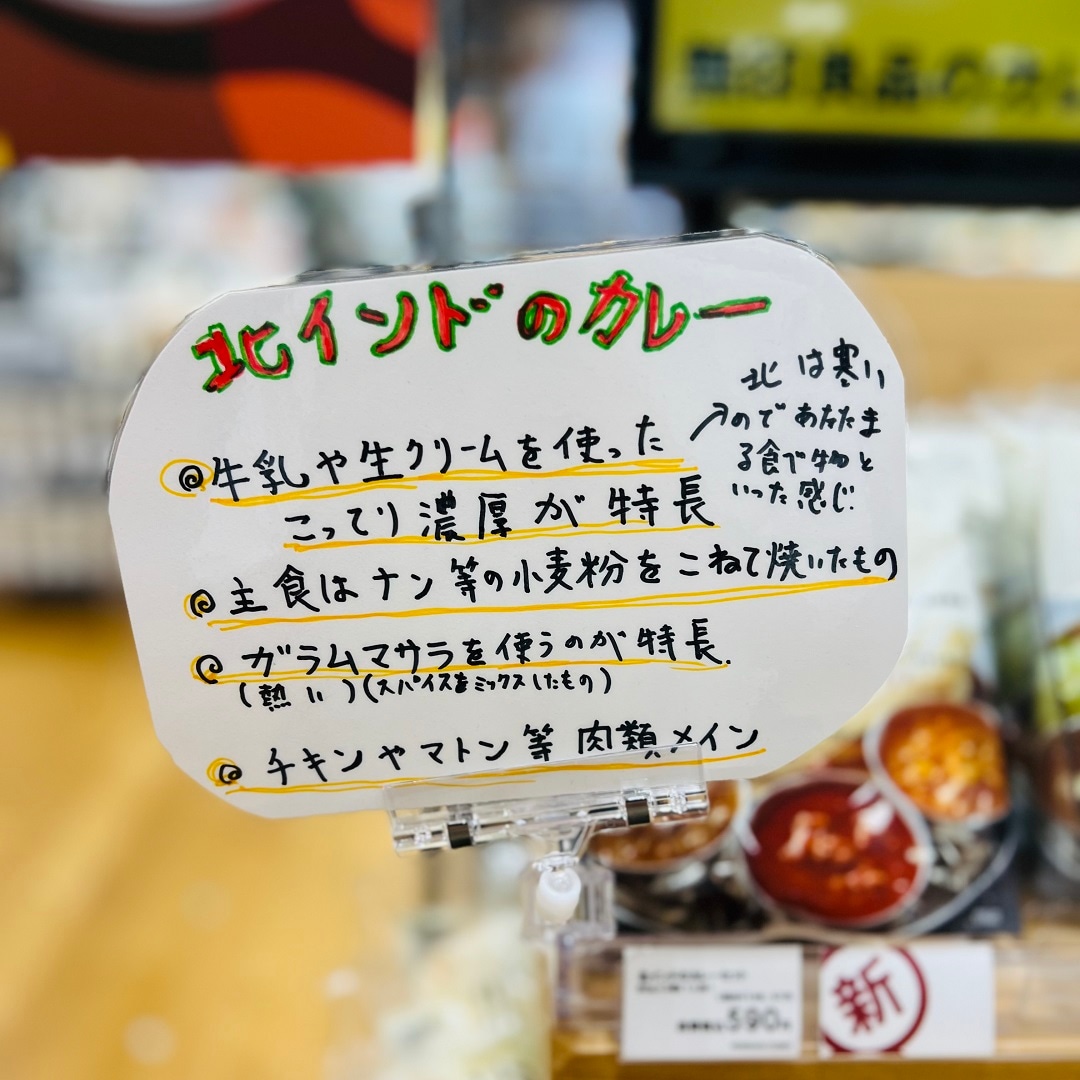 北インドのカレー
北は寒い
↗ので あたたま
る食べ物と
いった感じ
牛乳や生クリームを使った
こってり濃厚が特長
主食はナン等の小麦粉をこねて焼いたもの
ガラムマサラを使うのが特長.
(熱い)(スパイスをミックスしたもの)
チキンやマトン等 肉類メイン
590
新